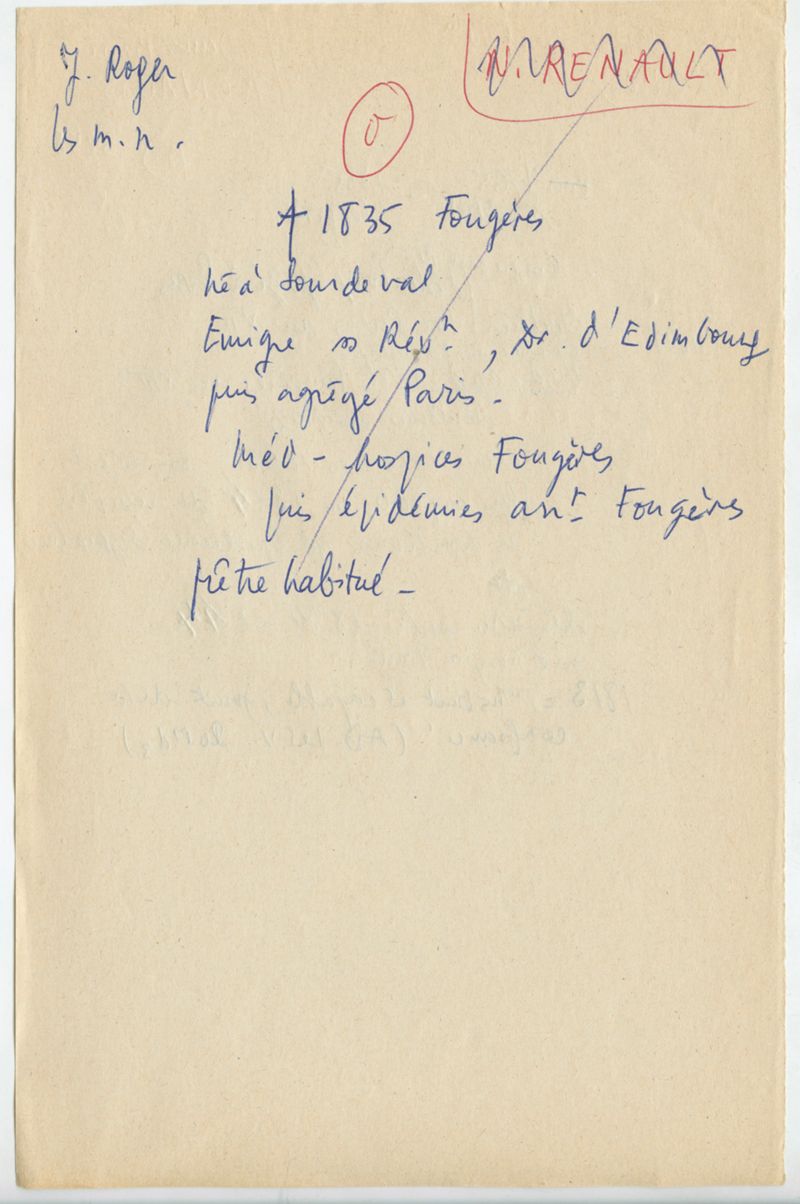 J. Roger
les m.n.
N. RENAULT
† 1835 Fougères
né à Sourdeval
Emigre ss Révn. , Dr. d'Edimbourg
puis agrégé Paris.
Méd - hospices Fougères
puis épidémies arrt Fougères
prêtre habitué -